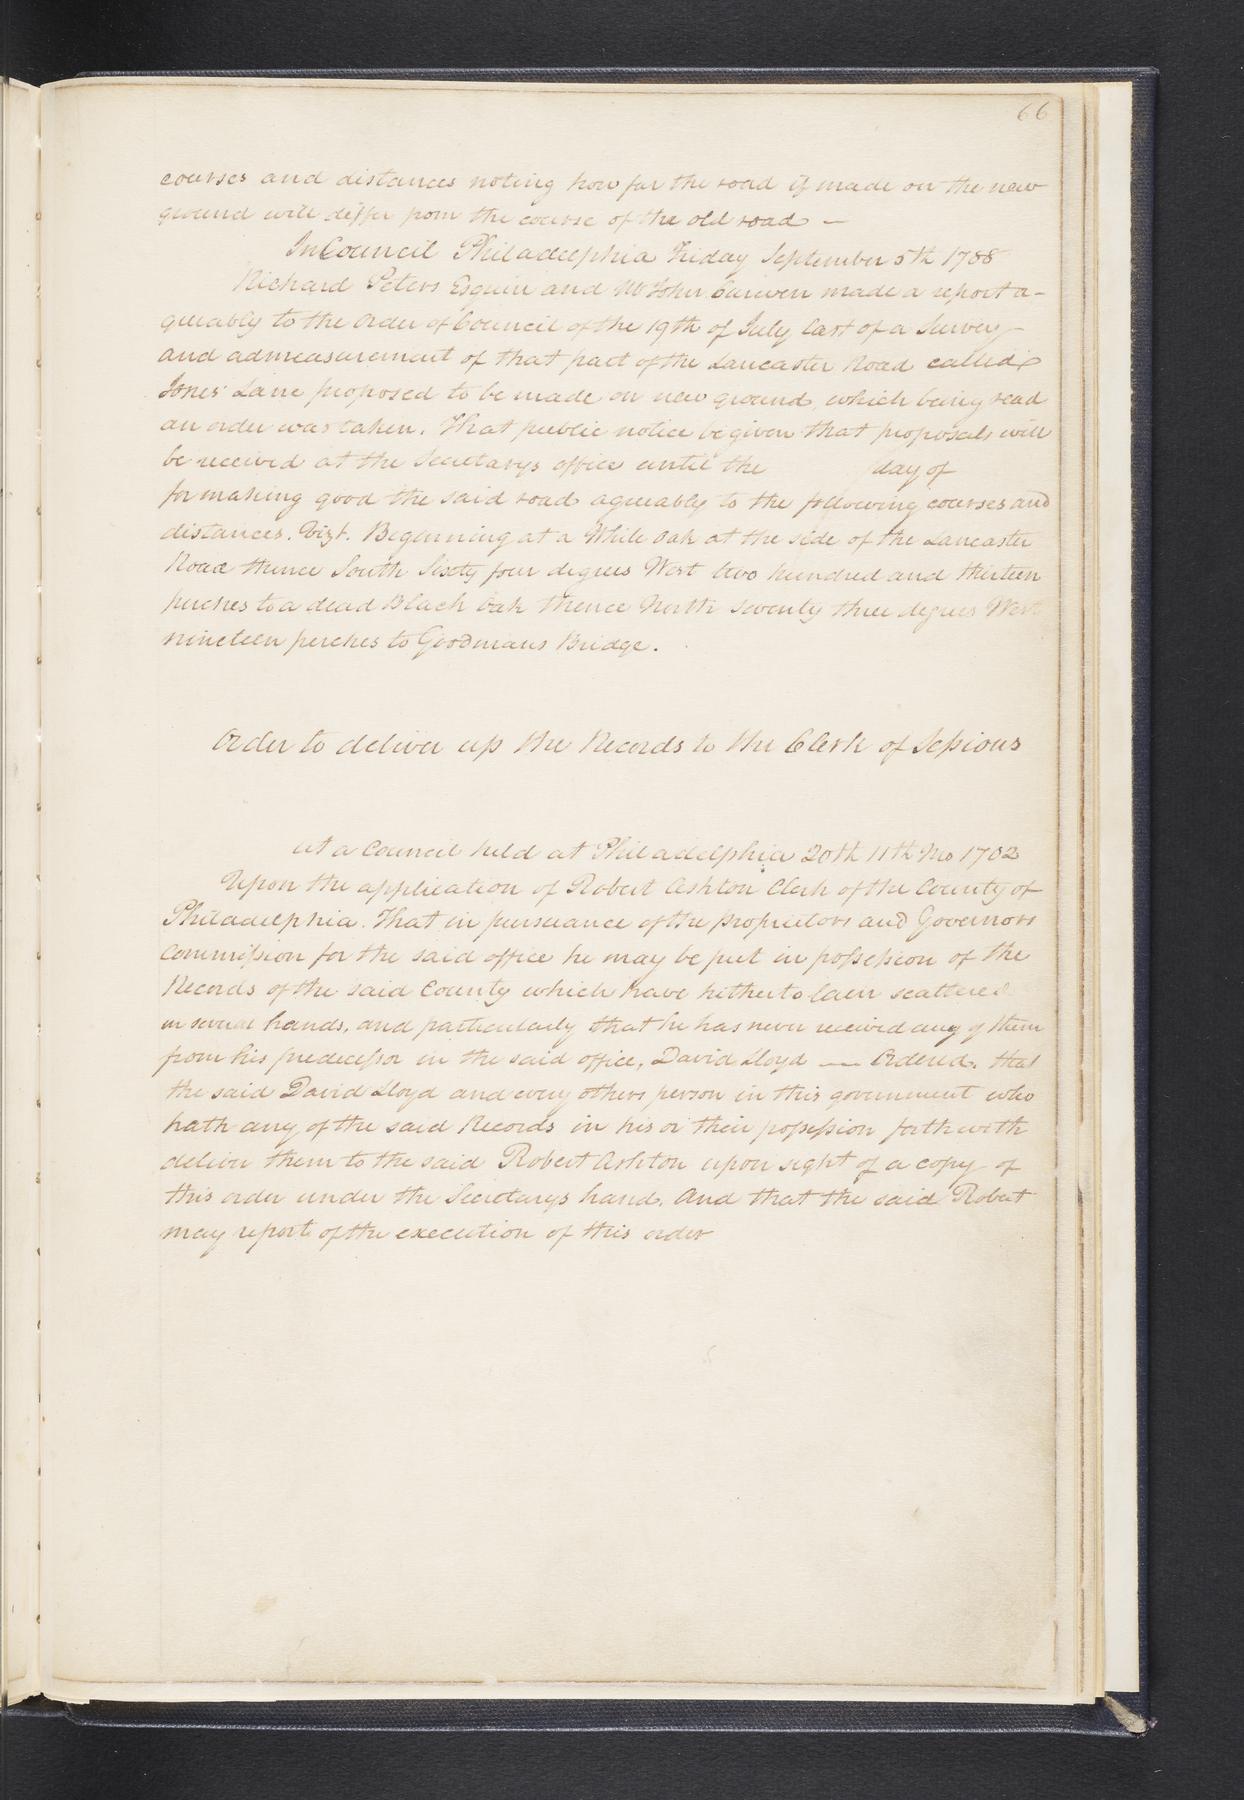 66
courses and distances noting how far the road if made on the new
ground will differ from the course of the old road —
In Council Philadelphia Friday September 5th 1788
Richard Peters Esquire and Mr John Curwen made a report a-
greeably to the order of Council of the 19th of July last of a Survey
and admeasurement of that part of the Lancaster Road called
Jones' Lane proposed to be made on new ground, which being read
an order was taken. That public notice be given that proposals will
be received at the Secretarys office until the day of
for making good the said road agreeably to the following courses and
distances. Vizt. Beginning at a White Oak at the side of the Lancaster
Road thence South Sixty four degrees West two hundred and thirteen
perches to a dead Black Oak thence North seventy three degrees West
nineteen perches to Goodmans Bridge.
Order to deliver up the Records to the Clerk of Sessions
At a Council held at Philadelphia 20th 11th Mo 1702
Upon the application of Robert Ashton Clerk of the County of
Philadelphia. That in persuance of the proprietors and Governors
Commission for the said office he may be put in possession of the
Records of the said County which have hitherto laen scattered
in several hands, and particularly that he has never received any of them
from his predecessor in the said office, David Lloyd — Ordered. that
the said David Lloyd and every others person in this government who
hath any of the said Records in his or their possession forthwith
deliver them to the said Robert Ashton upon sight of a copy of
this order under the Secretarys hand. And that the said Robert
may report of the execution of this order